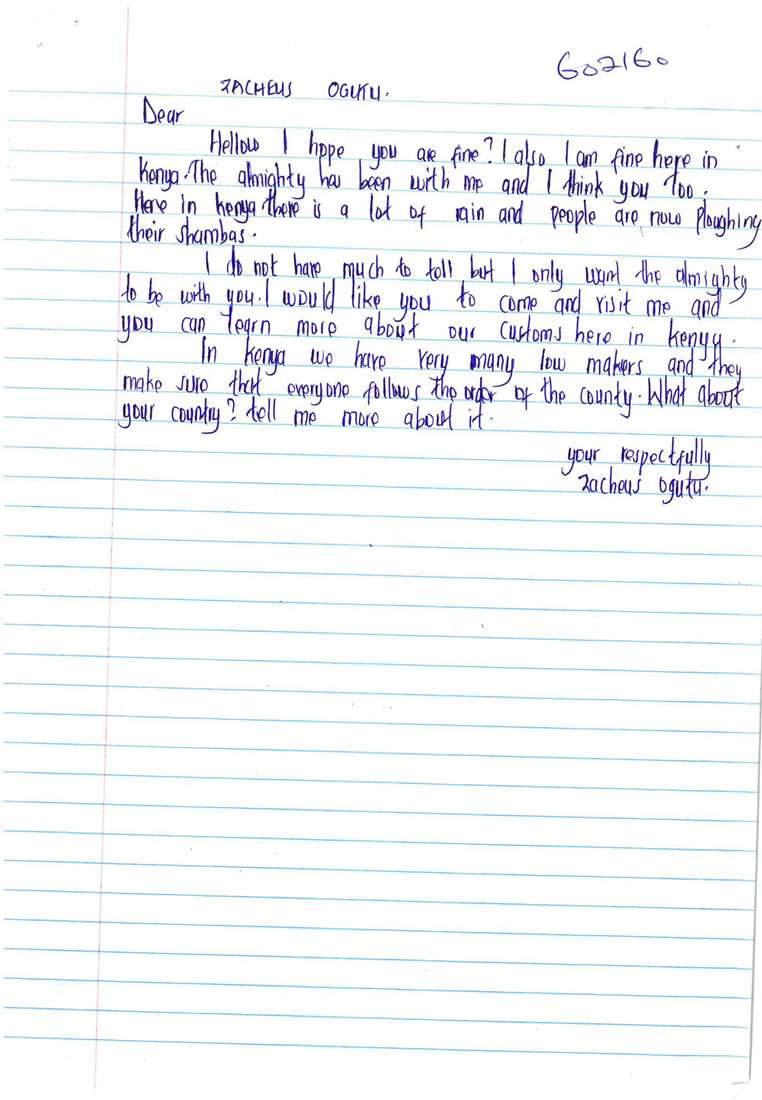 602160
ZACHEUS OGUTU.
Dear
Hellow I hope you are fine? I also I am fine here in
Kenya. The almighty has been with me and I think you Too.
Here in Kenya there is a lot of rain and people are now ploughing
their shambas.
I do not have much to tell but I only want the almighty
to be with you. I would like you to come and visit me and
you can learn more about our customs here in Kenya.
In Kenya we have very many low makers and they
make sure that everyone follows the order of the county. What about
your country? tell me more about it.
your respectfully
Zacheus Ogutu.